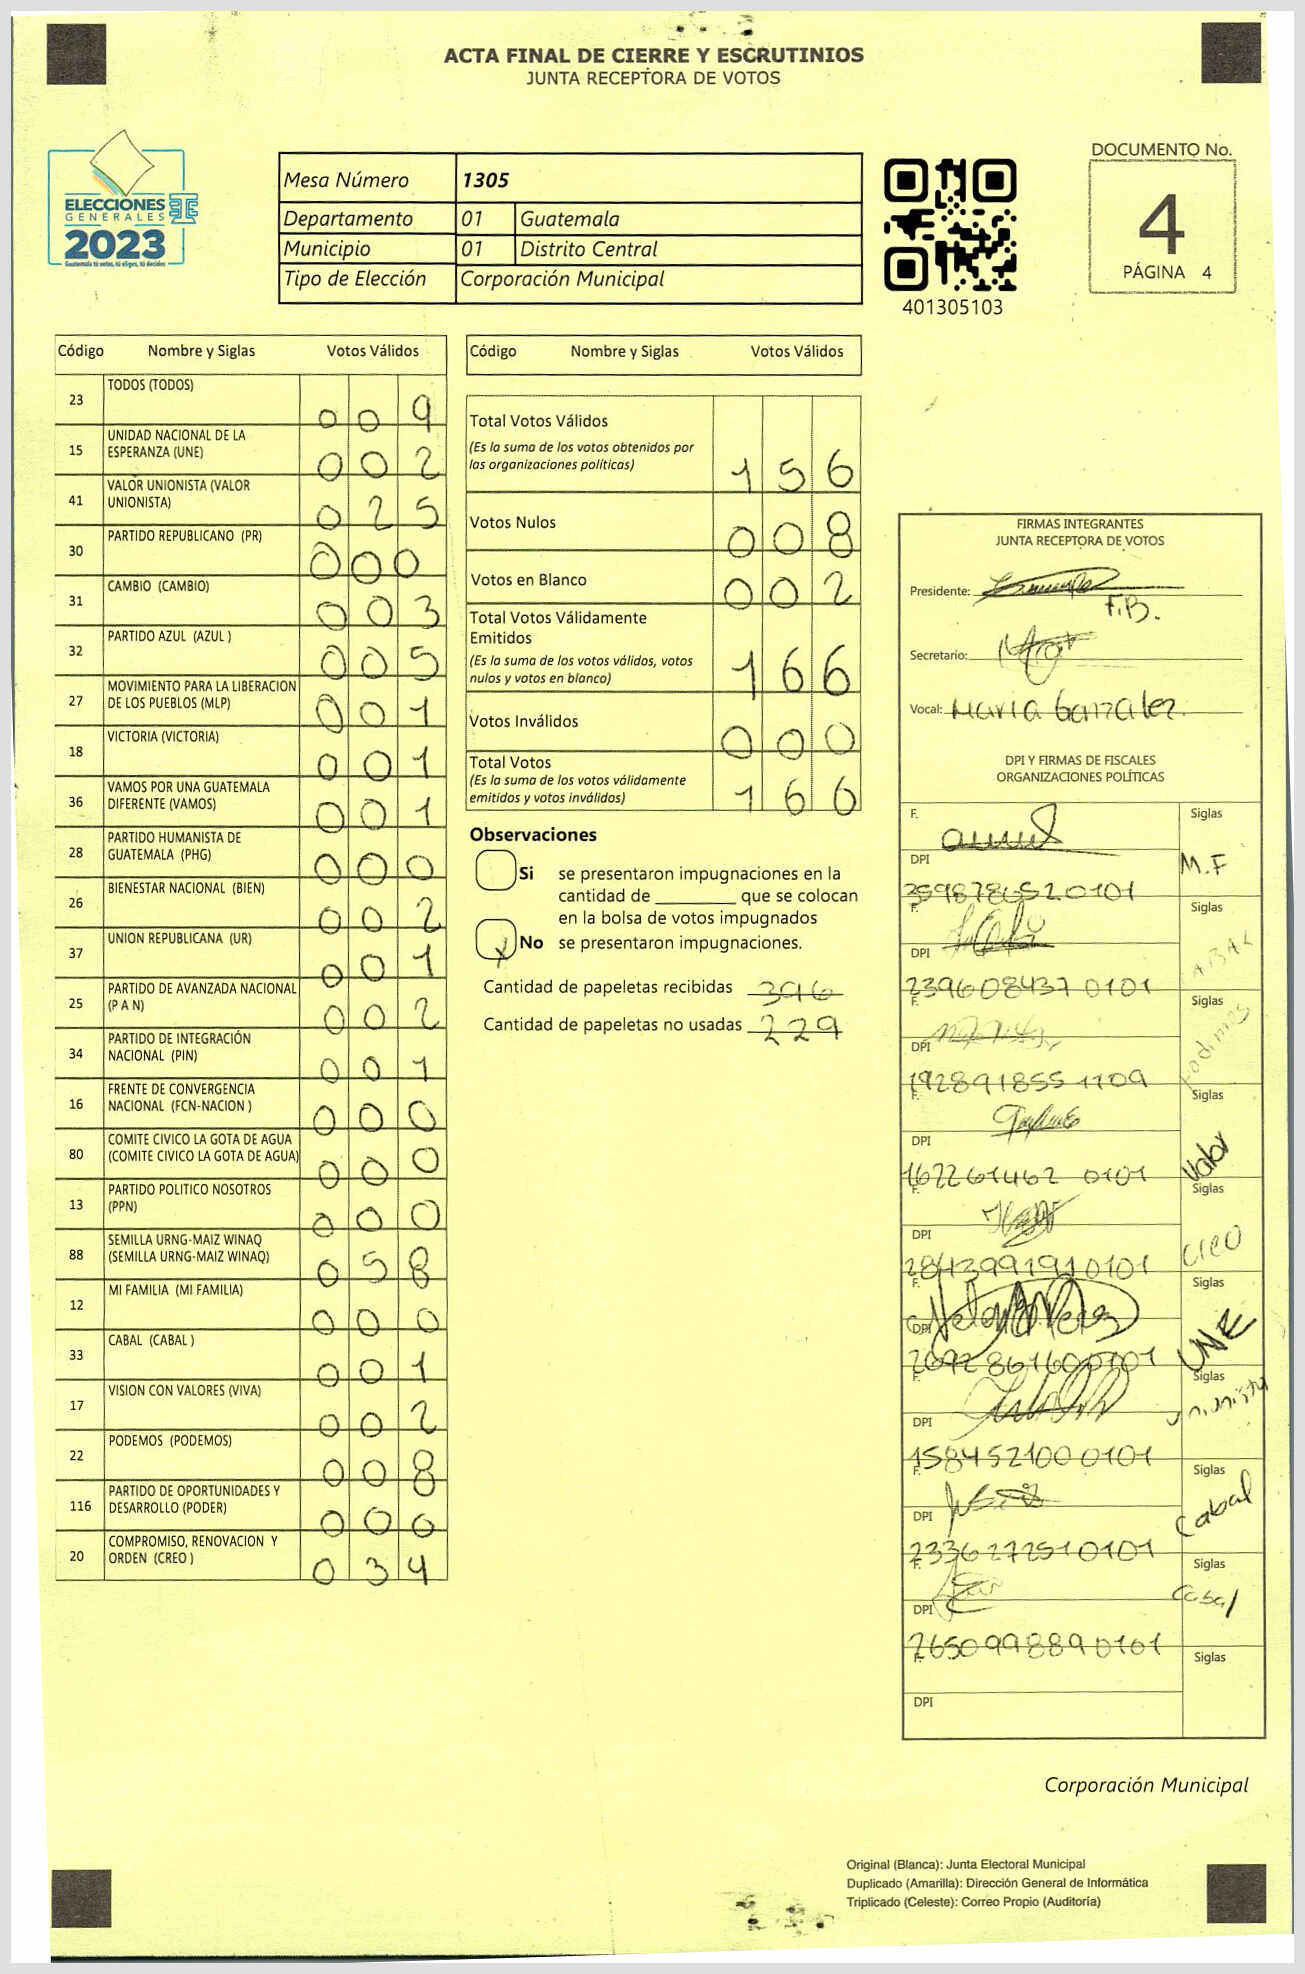 ACTA FINAL DE CIERRE Y ESCRUTINIOS
JUNTA RECEPTORA DE VOTOS
ELECCIONES
GENERALES
2023
Guatemala tú votas, tú eliges, tú decides
Mesa Número 1305
Departamento 01 Guatemala
Municipio 01 Distrito Central
Tipo de Elección Corporación Municipal
401305103
DOCUMENTO No.
4
PÁGINA 4
Código Nombre y Siglas Votos Válidos
23 TODOS (TODOS) 0 0 9
15 UNIDAD NACIONAL DE LA ESPERANZA (UNE) 0 0 2
41 VALOR UNIONISTA (VALOR UNIONISTA) 0 2 5
30 PARTIDO REPUBLICANO (PR) 0 0 0
31 CAMBIO (CAMBIO) 0 0 3
32 PARTIDO AZUL (AZUL ) 0 0 5
27 MOVIMIENTO PARA LA LIBERACION DE LOS PUEBLOS (MLP) 0 0 1
18 VICTORIA (VICTORIA) 0 0 1
36 VAMOS POR UNA GUATEMALA DIFERENTE (VAMOS) 0 0 1
28 PARTIDO HUMANISTA DE GUATEMALA (PHG) 0 0 0
26 BIENESTAR NACIONAL (BIEN) 0 0 2
37 UNION REPUBLICANA (UR) 0 0 1
25 PARTIDO DE AVANZADA NACIONAL (P A N) 0 0 2
34 PARTIDO DE INTEGRACIÓN NACIONAL (PIN) 0 0 1
16 FRENTE DE CONVERGENCIA NACIONAL (FCN-NACION ) 0 0 0
80 COMITE CIVICO LA GOTA DE AGUA (COMITE CIVICO LA GOTA DE AGUA) 0 0 0
13 PARTIDO POLITICO NOSOTROS (PPN) 0 0 0
88 SEMILLA URNG-MAIZ WINAQ (SEMILLA URNG-MAIZ WINAQ) 0 5 8
12 MI FAMILIA (MI FAMILIA) 0 0 0
33 CABAL (CABAL ) 0 0 1
17 VISION CON VALORES (VIVA) 0 0 2
22 PODEMOS (PODEMOS) 0 0 8
116 PARTIDO DE OPORTUNIDADES Y DESARROLLO (PODER) 0 0 0
20 COMPROMISO, RENOVACION Y ORDEN (CREO ) 0 3 4
Código Nombre y Siglas Votos Válidos
Total Votos Válidos
(Es la suma de los votos obtenidos por
las organizaciones políticas) 1 5 6
Votos Nulos 0 0 8
Votos en Blanco 0 0 2
Total Votos Válidamente
Emitidos
(Es la suma de los votos válidos, votos
nulos y votos en blanco) 1 6 6
Votos Inválidos 0 0 0
Total Votos
(Es la suma de los votos válidamente
emitidos y votos inválidos) 1 6 6
Observaciones
Si se presentaron impugnaciones en la
cantidad de ________ que se colocan
en la bolsa de votos impugnados
X No se presentaron impugnaciones.
Cantidad de papeletas recibidas 396
Cantidad de papeletas no usadas 229
FIRMAS INTEGRANTES
JUNTA RECEPTORA DE VOTOS
Presidente:
F.B.
Secretario:
Vocal: Maria Gonzalez
DPI Y FIRMAS DE FISCALES
ORGANIZACIONES POLÍTICAS
F. Siglas
DPI M.F
3598786520101
F. Siglas
DPI
2396084370101
F. Siglas
DPI
1928918551109
F. Siglas
DPI Valor
1622614620101
F. Siglas
DPI creo
2843991910101
F. Siglas
DPI UNE
2692861600101
F. Siglas
DPI Unionista
1584521000101
F. Siglas
DPI Cabal
2336272510101
F. Siglas
DPI Cabal
2650998890101
F. Siglas
DPI
Corporación Municipal
Original (Blanca): Junta Electoral Municipal
Duplicado (Amarilla): Dirección General de Informática
Triplicado (Celeste): Correo Propio (Auditoría)